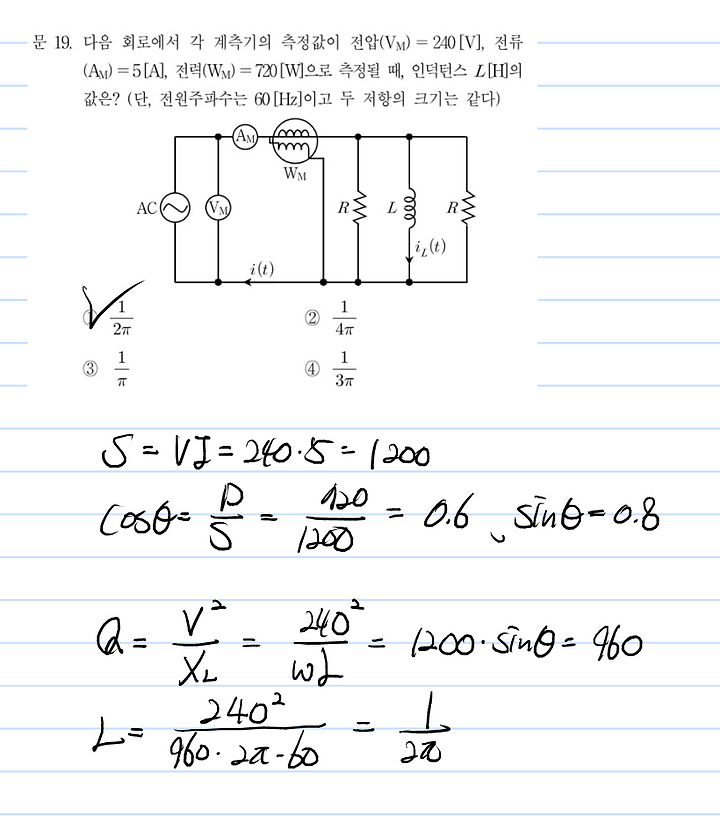 문 19. 다음 회로에서 각 계측기의 측정값이 전압(V_M) = 240 [V], 전류
(A_M) = 5 [A], 전력(W_M) = 720 [W]으로 측정될 때, 인덕턴스 L [H]의
값은? (단, 전원주파수는 60 [Hz]이고 두 저항의 크기는 같다)
A_M
W_M
AC V_M R L R
i_L(t)
i(t)
① 1/2π ② 1/4π
③ 1/π ④ 1/3π
S = VI = 240·5 = 1200
cosθ = P/S = 720/1200 = 0.6, sinθ = 0.8
Q = V²/X_L = 240²/ωL = 1200·sinθ = 960
L = 240²/960·2π·60 = 1/2π